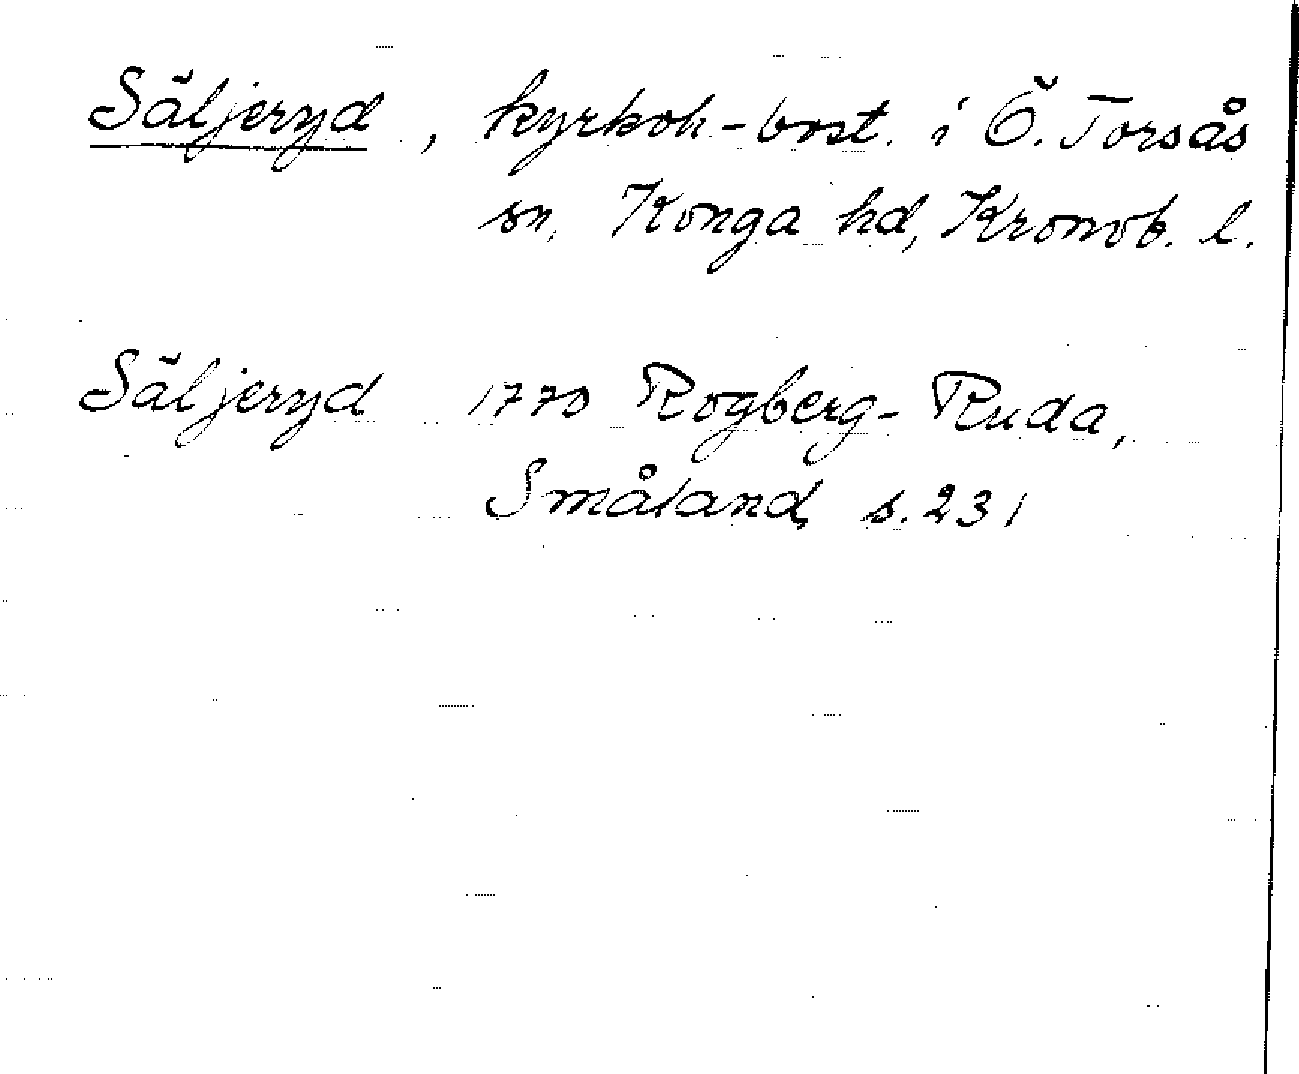 Säljeryd, kyrkoh-bost. i Ö. Torsås
sn, Konga hd, Kronob. l.
Säljeryd 1770 Rogberg-Ruda,
Småland, s. 231